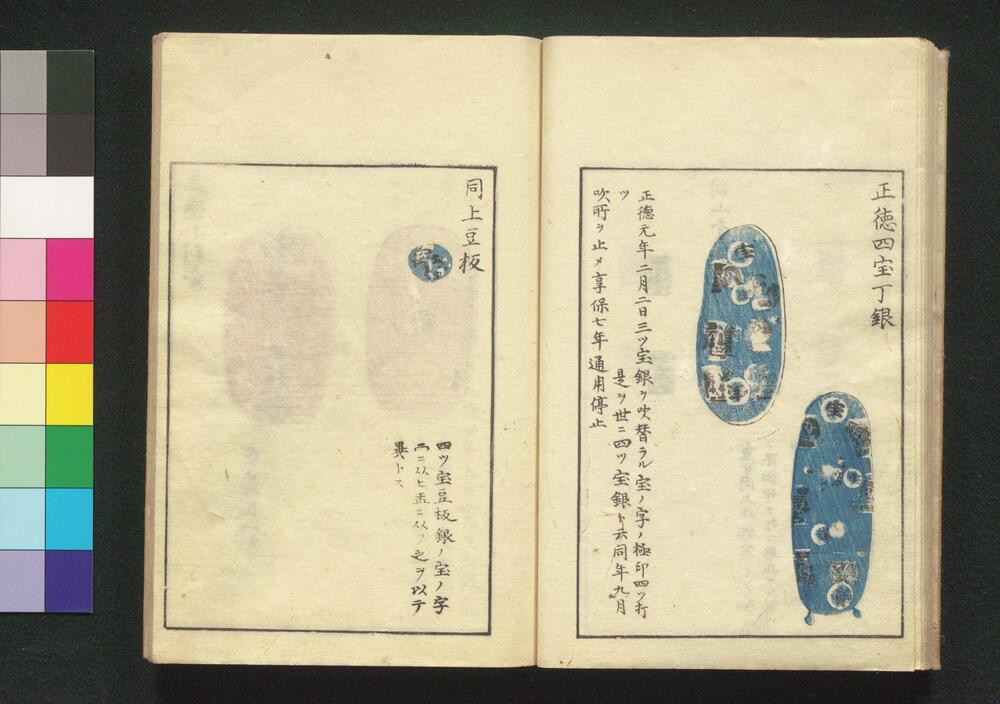 正徳四宝丁銀
正徳元年二月二日三ツ宝銀ヲ吹替ラル宝ノ字ノ極印四ツ打
ツ
是ヲ世ニ四ツ宝銀ト云同年九月
吹所ヲ止メ享保七年通用停止
同上豆板
四ツ宝豆板銀ノ宝ノ字
ニ似ヒ ニ似ツ之ヲ以テ
異トス